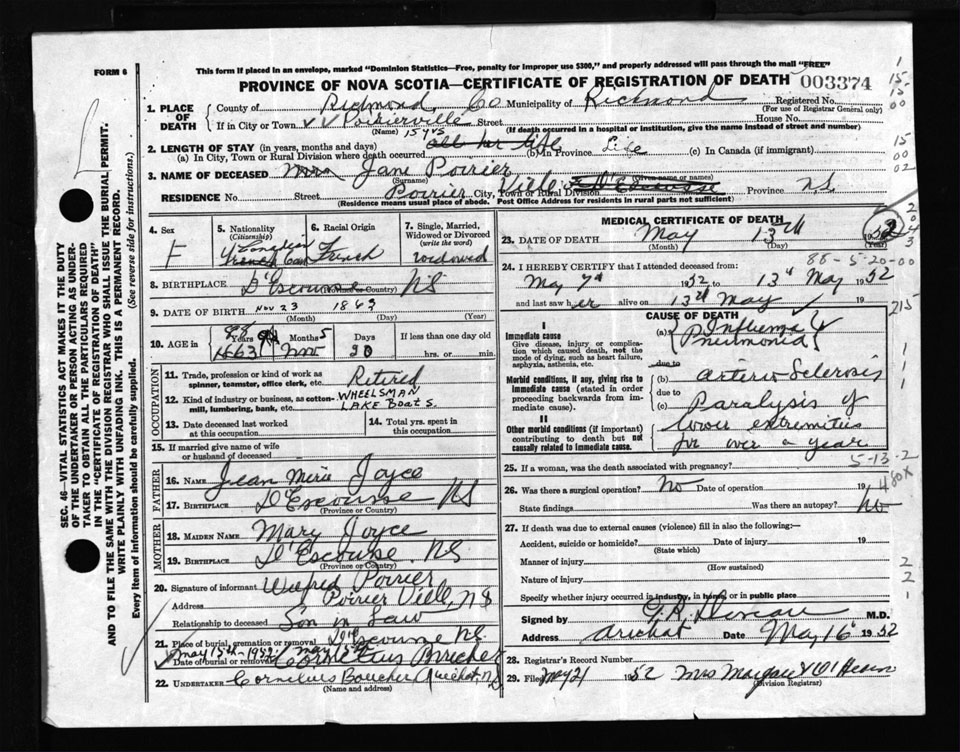 FORM 6
This form if placed in an envelope, marked "Dominion Statistics—Free, penalty for improper use $300," and properly addressed will pass through the mail "FREE"
PROVINCE OF NOVA SCOTIA—CERTIFICATE OF REGISTRATION OF DEATH 003374
1. PLACE OF DEATH
County of Richmond Co Municipality of Richmond Registered No.
(For use of Registrar General only)
If in City or Town Poirierville Street House No.
(Name) (If death occurred in a hospital or institution, give the name instead of street and number)
15 yrs
2. LENGTH OF STAY (in years, months and days) all her life
(a) In City, Town or Rural Division where death occurred (b) In Province Life (c) In Canada (if immigrant)
3. NAME OF DECEASED Mrs Jane Poirier
(Surname) (Given name or names)
RESIDENCE No. Street Poirier Ville City, Town or Rural Division D'Escousse Province N.S.
(Residence means usual place of abode. Post Office Address for residents in rural parts not sufficient)
4. Sex F
5. Nationality (Citizenship) Canadian
6. Racial Origin French
7. Single, Married, Widowed or Divorced (write the word) widowed
8. BIRTHPLACE D'Escousse NS
(Province or Country)
9. DATE OF BIRTH Nov 23 1863
(Month) (Day) (Year)
10. AGE in Years 88 Months 5 Days 20 If less than one day old hrs. or min.
1863 Nov
OCCUPATION
11. Trade, profession or kind of work as spinner, teamster, office clerk, etc. Retired
12. Kind of industry or business, as cotton-mill, lumbering, bank, etc. WHEELSMAN LAKE BOATS.
13. Date deceased last worked at this occupation
14. Total yrs. spent in this occupation
15. If married give name of wife or husband of deceased
FATHER
16. NAME Jean Marie Joyce
17. BIRTHPLACE D'Escousse NS
(Province or Country)
MOTHER
18. MAIDEN NAME Mary Joyce
19. BIRTHPLACE D'Escousse NS
(Province or Country)
20. Signature of informant Wilfred Poirier
Address Poirier Ville, NS
Relationship to deceased Son in Law
21. Place of burial, cremation or removal D'Escousse NS.
May 15th - 1952 May 15th
Date of burial or removal Cornelius Boucher
22. UNDERTAKER Cornelius Boucher Arichat, NS
(Name and address)
MEDICAL CERTIFICATE OF DEATH
23. DATE OF DEATH May 13th 1952
(Month) (Day) (Year)
88-5-20-00
24. I HEREBY CERTIFY that I attended deceased from:
May 7th 1952 to 13th May 1952
and last saw her alive on 13th May 19
CAUSE OF DEATH
I
Immediate cause
Give disease, injury or complication which caused death, not the mode of dying, such as heart failure, asphyxia, asthenia, etc.
(a) Influenza & Pneumonia
due to
Morbid conditions, if any, giving rise to immediate cause (stated in order proceeding backwards from immediate cause).
(b) arterio Sclerosis
due to
(c) Paralysis of lower extremities for over a year
II
Other morbid conditions (if important) contributing to death but not causally related to immediate cause.
25. If a woman, was the death associated with pregnancy?
5-13-2
26. Was there a surgical operation? No Date of operation 19
480X
State findings Was there an autopsy? No
27. If death was due to external causes (violence) fill in also the following:—
Accident, suicide or homicide? Date of injury 19
(State which)
Manner of injury
(How sustained)
Nature of injury
Specify whether injury occurred in industry, in home, or in public place
Signed by M.D.
Address Arichat Date May 16 1952
28. Registrar's Record Number
29. Filed May 21 1952 Mrs Margaret O'Hearn
(Division Registrar)
SEC. 46—VITAL STATISTICS ACT MAKES IT THE DUTY OF THE UNDERTAKER OR PERSON ACTING AS UNDERTAKER TO OBTAIN ALL THE PARTICULARS REQUIRED IN THE "CERTIFICATE OF REGISTRATION OF DEATH" AND TO FILE THE SAME WITH THE DIVISION REGISTRAR WHO SHALL ISSUE THE BURIAL PERMIT.
WRITE PLAINLY WITH UNFADING INK. THIS IS A PERMANENT RECORD.
Every item of information should be carefully supplied. (See reverse side for instructions.)